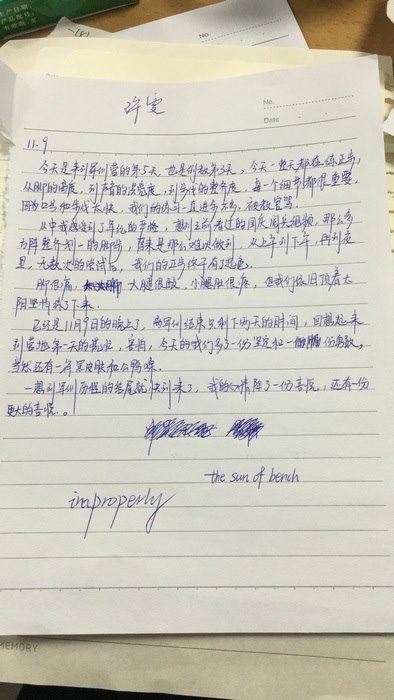 No.
Date
许雯
11.9
今天是来到军训营的第5天，也是倒数第3天。今天一整天都在练正步，
从脚的高度，到声音的响亮度，到身体的整齐度，每一个细节都很重要，
因为口号和步伐太快，我们的练习一直进步不大，被教官骂。
从中我感受到了军人的辛苦，想到之前看过的国庆阅兵视频，那么多
方阵整齐划一的脚步，原来是那么难以做到，从上午到下午，再到夜
里，无数次的尝试后，我们的正步终于有了起色。
脚很痛，大腿很酸，小腿肚很疼，但我们依旧顶着太
阳坚持了下来。
已经是11月9日的晚上了，离军训结束只剩下两天的时间，回想起来
到营地第一天的状态，害羞，今天的我们多了一份坚定和一份勇敢，
当然还有一身黑皮肤和公鸭嗓。
一想到军训历程的尾就快到来了，我的心情除了一份喜悦，还有一份
更大的喜悦。
the sun of bench
improperly
MEMORY